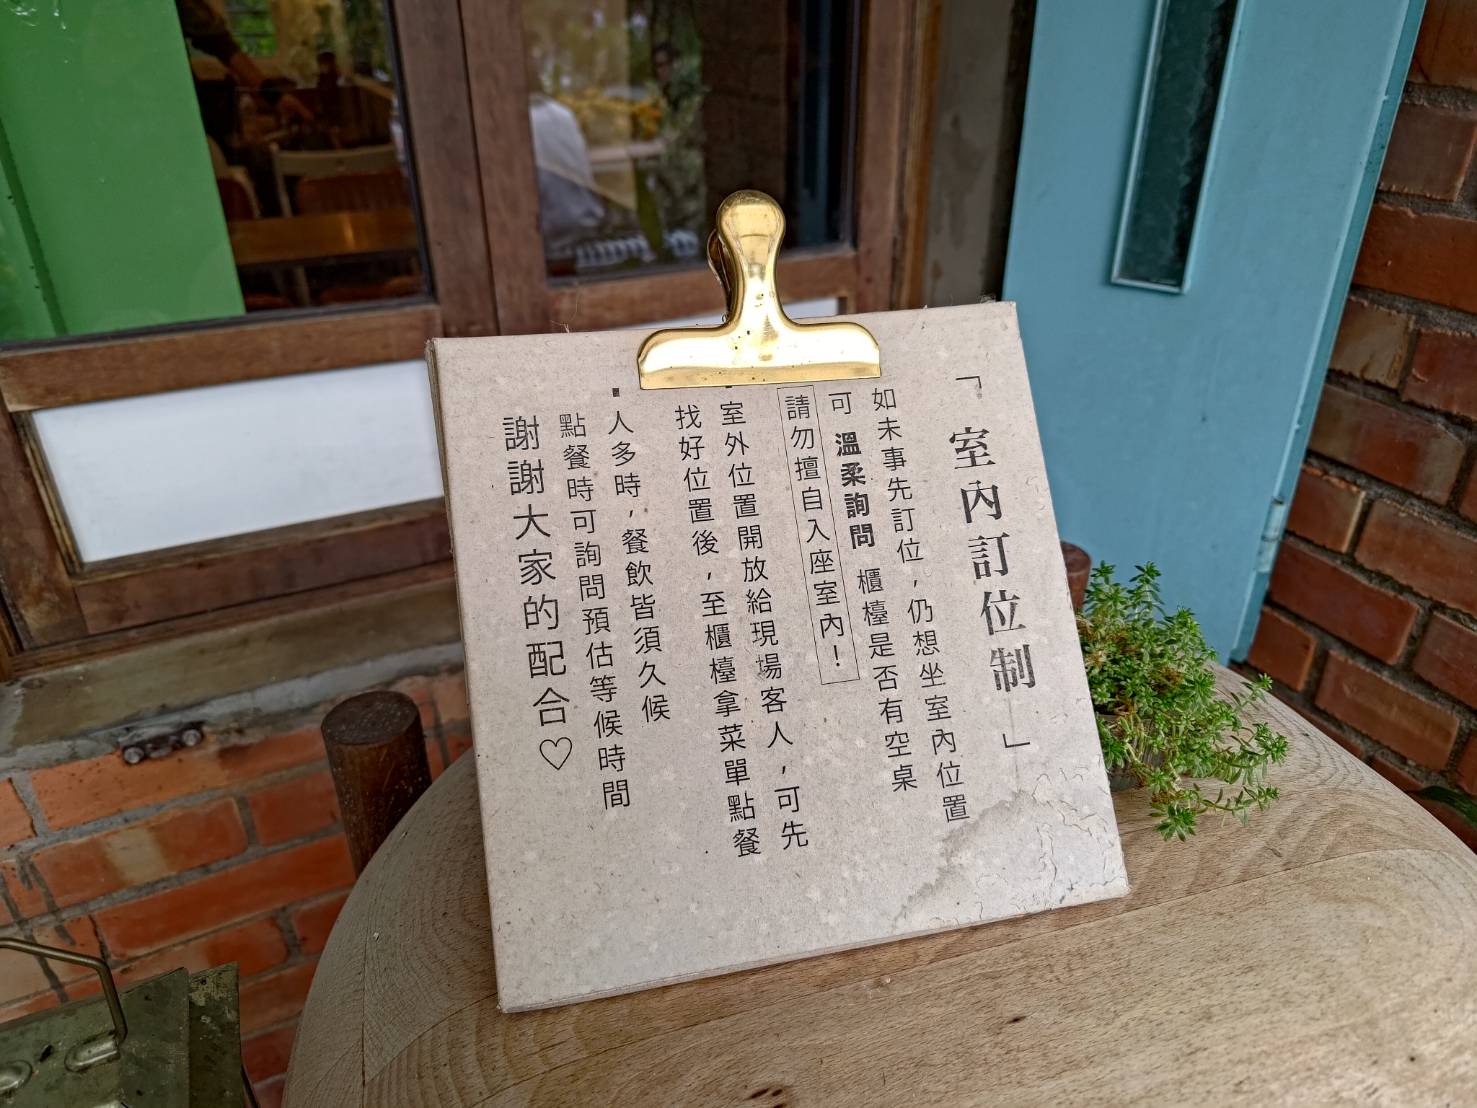 「室內訂位制」
如未事先訂位，仍想坐室內位置
可 溫柔詢問 櫃檯是否有空桌
請勿擅自入座室內！
室外位置開放給現場客人，可先
找好位置後，至櫃檯拿菜單點餐
▪人多時，餐飲皆須久候
點餐時可詢問預估等候時間
謝謝大家的配合♡